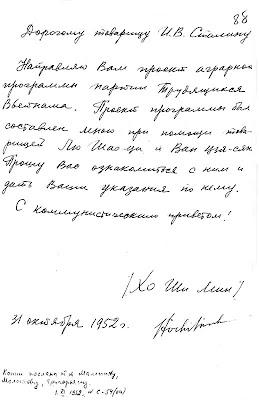 88
Дорогому товарищу И.В. Сталину
Направляю Вам проект аграрной
программы партии Трудящихся
Вьетнама. Проект программы был
составлен мною при помощи това-
рищей Лю Шао-ци и Ван Цзя-сян.
Прошу Вас ознакомиться с ним и
дать Ваши указания по нему.
С коммунистическим приветом!
/Хо Ши Мин/
31 октября 1952 г.
Копии посланы т.т. Маленкову,
Молотову, Григорьяну.